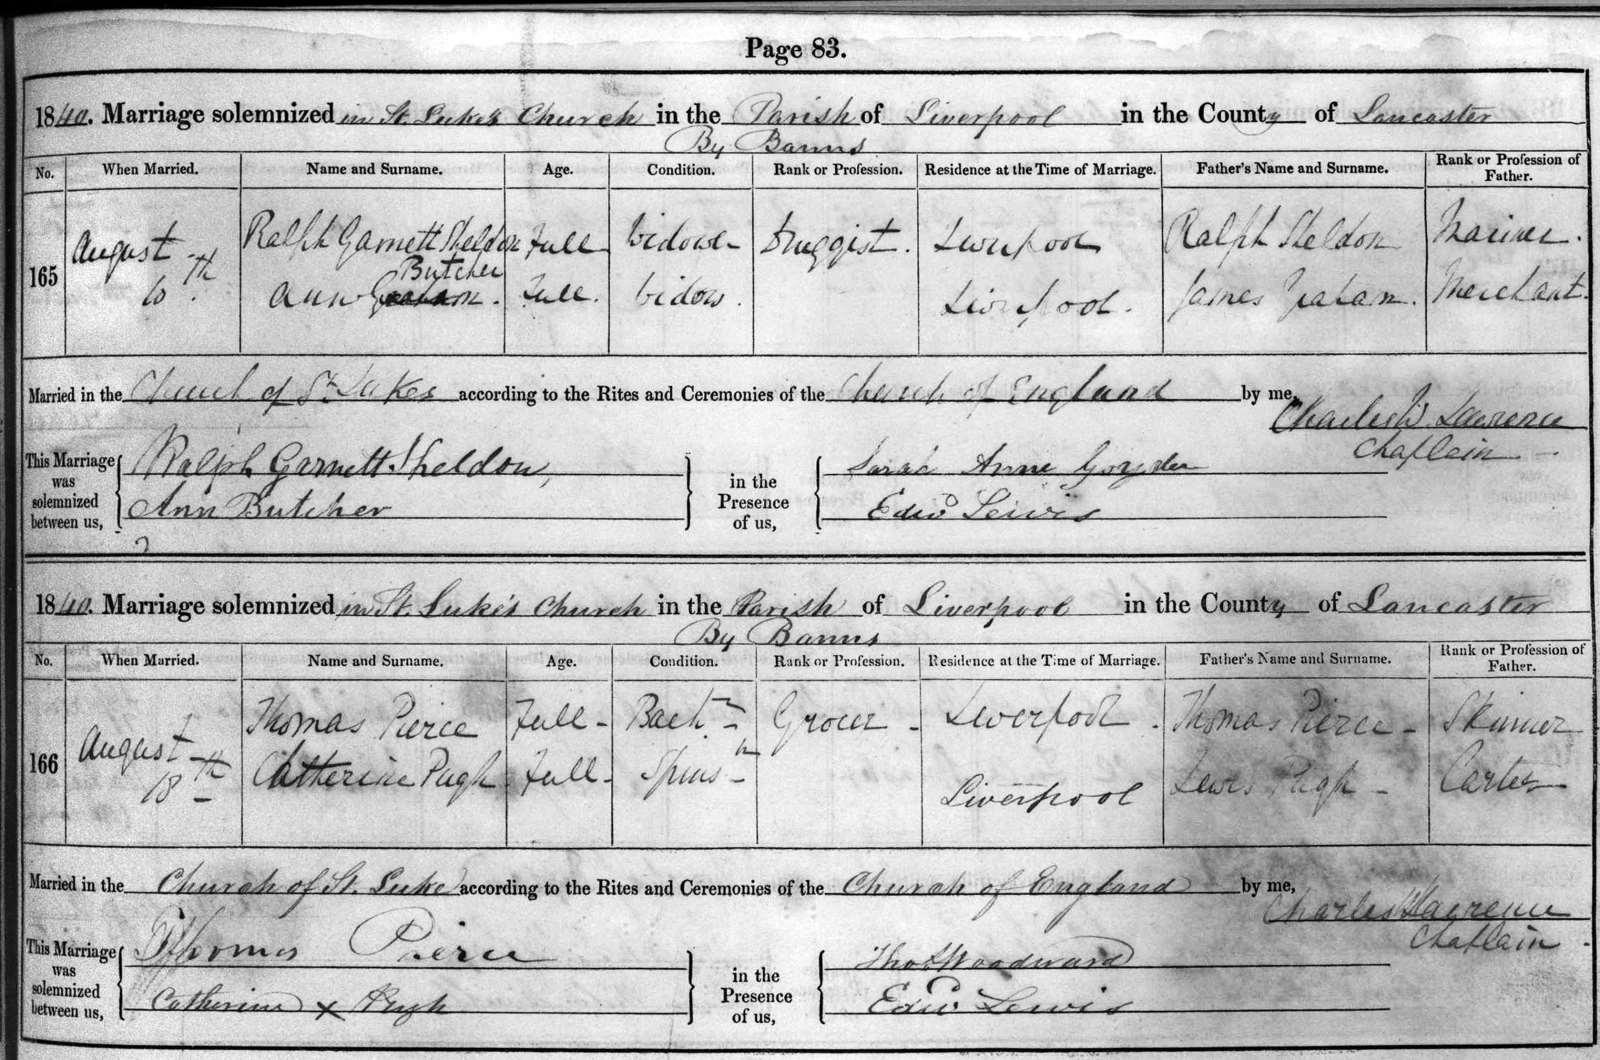 Page 83.
1840. Marriage solemnized in St. Luke's Church in the Parish of Liverpool in the County of Lancaster
By Banns
No. When Married. Name and Surname. Age. Condition. Rank or Profession. Residence at the Time of Marriage. Father's Name and Surname. Rank or Profession of Father.
165 August 10th Ralph Garnett Sheldon Full Widower Druggist. Liverpool Ralph Sheldon Mariner.
Butcher
Ann Graham. Full. Widow. Liverpool. James Graham. Merchant.
Married in the Church of St Lukes according to the Rites and Ceremonies of the Church of England by me,
Charles W Lawrence
Chaplain
This Marriage was solemnized between us, Ralph Garnett Sheldon, in the Presence of us, Sarah Anne Goyder
Ann Butcher Edwd Lewis
1840. Marriage solemnized in St. Luke's Church in the Parish of Liverpool in the County of Lancaster
By Banns
No. When Married. Name and Surname. Age. Condition. Rank or Profession. Residence at the Time of Marriage. Father's Name and Surname. Rank or Profession of Father.
166 August 18th Thomas Pierce Full Bachr Grocer Liverpool Thomas Pierce Skinner
Catherine Pugh Full Spinsr Liverpool Lewis Pugh Carter
Married in the Church of St. Luke according to the Rites and Ceremonies of the Church of England by me,
Charles W Lawrence
Chaplain
This Marriage was solemnized between us, Thomas Pierce in the Presence of us, Thos Woodward
Catherine x Pugh Edwd Lewis